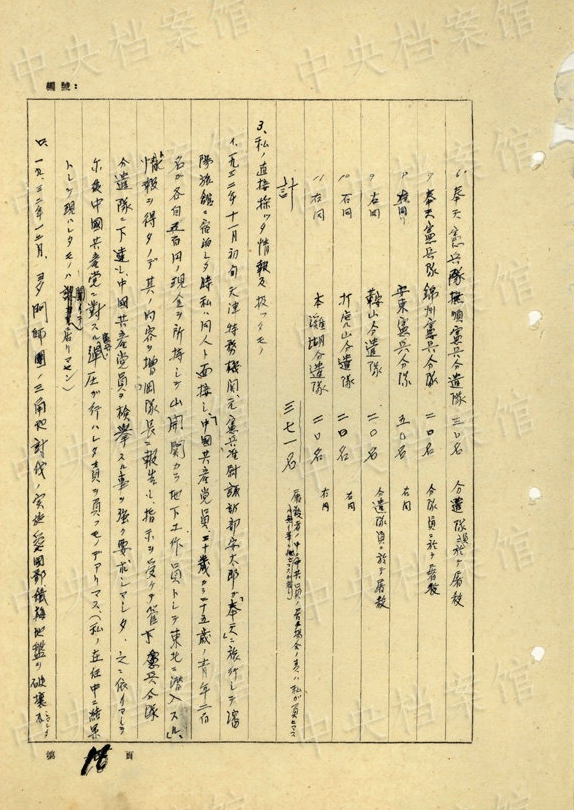 編號：
6、奉天憲兵隊撫順憲兵分遣隊 三〇名 分遣隊 於テ屠殺
7、奉天憲兵隊錦州憲兵分隊 二〇名 分隊員 於テ屠殺
安東憲兵分隊 五〇名 右同
9、右同 鞍山分遣隊 二〇名 分遣隊員 於テ屠殺
10、右同 打虎山分遣隊 二〇名 右同
11、右同 本溪湖分遣隊 二〇名 右同
計 三七一名
3、私ノ直接採ッタ情報及扱ッタモノ
イ、一九三二年十一月初旬天津特務機関、元憲兵准尉諏訪部安太郎ガ奉天ニ旅行シテ瀋
陽旅館ニ宿泊シタ時私ハ同人ト面接シ、「中國共産党員二十歳カラ二十五歳ノ青年二百
名ガ各自五百円ノ現金ヲ所持シテ山海関カラ地下工作員トシテ東北ニ潜入スル」
情報ヲ得タノデ其ノ内容ヲ増岡隊長ニ報告シ、指示ヲ受ケテ管下憲兵分隊
分遣隊ニ下達シ、中國共産党員ヲ検挙スル事ヲ強ク要求シマシタ、之ニ依リマシテ
尓後中國共産党ニ對スル弾圧ガ行ハレタ責ヲ負フモノデアリマス、（私ノ在任中ニ結果
トシテ現ハレタモノハ 居リマセン）
ロ、一九三二年一二月、多門師團ノ三角地討伐ノ実施 鐵梅地盤ヲ破壊
第 18 頁
中央档案馆